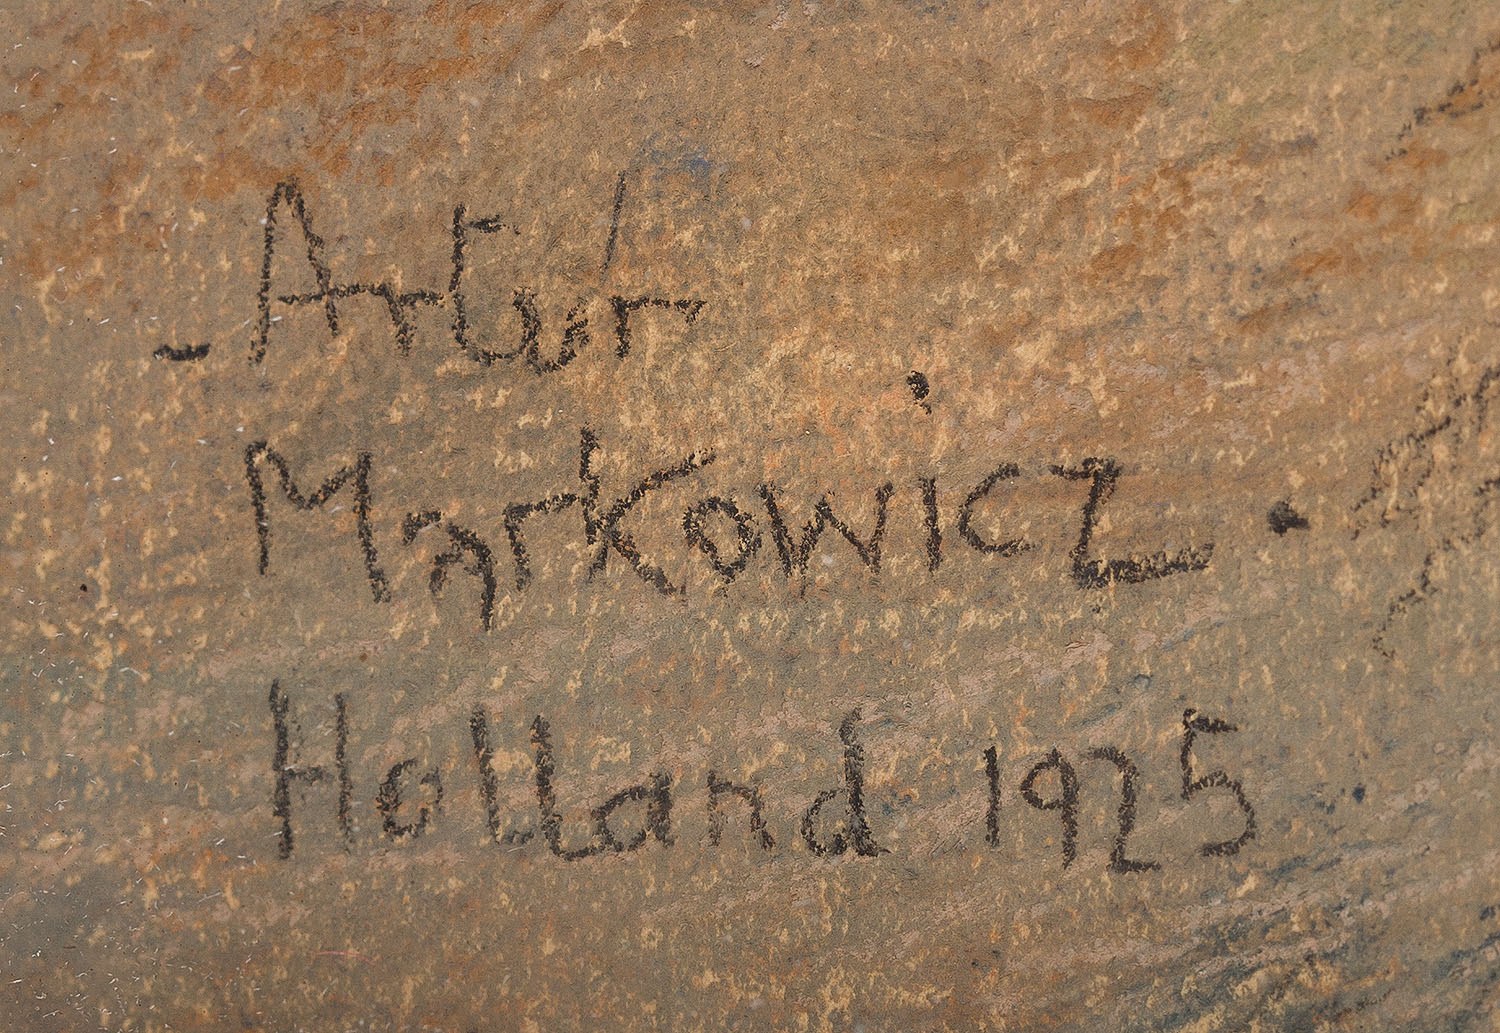 - Artur
Markowicz .
Holland 1925